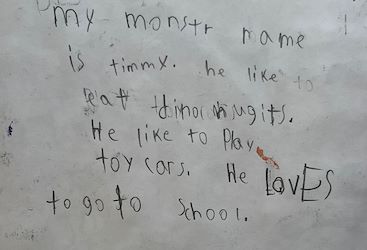 my monstr name
is timmy. he like to
eat dinochnugits.
He like to Play
toy cars. He LovES
to go to school.